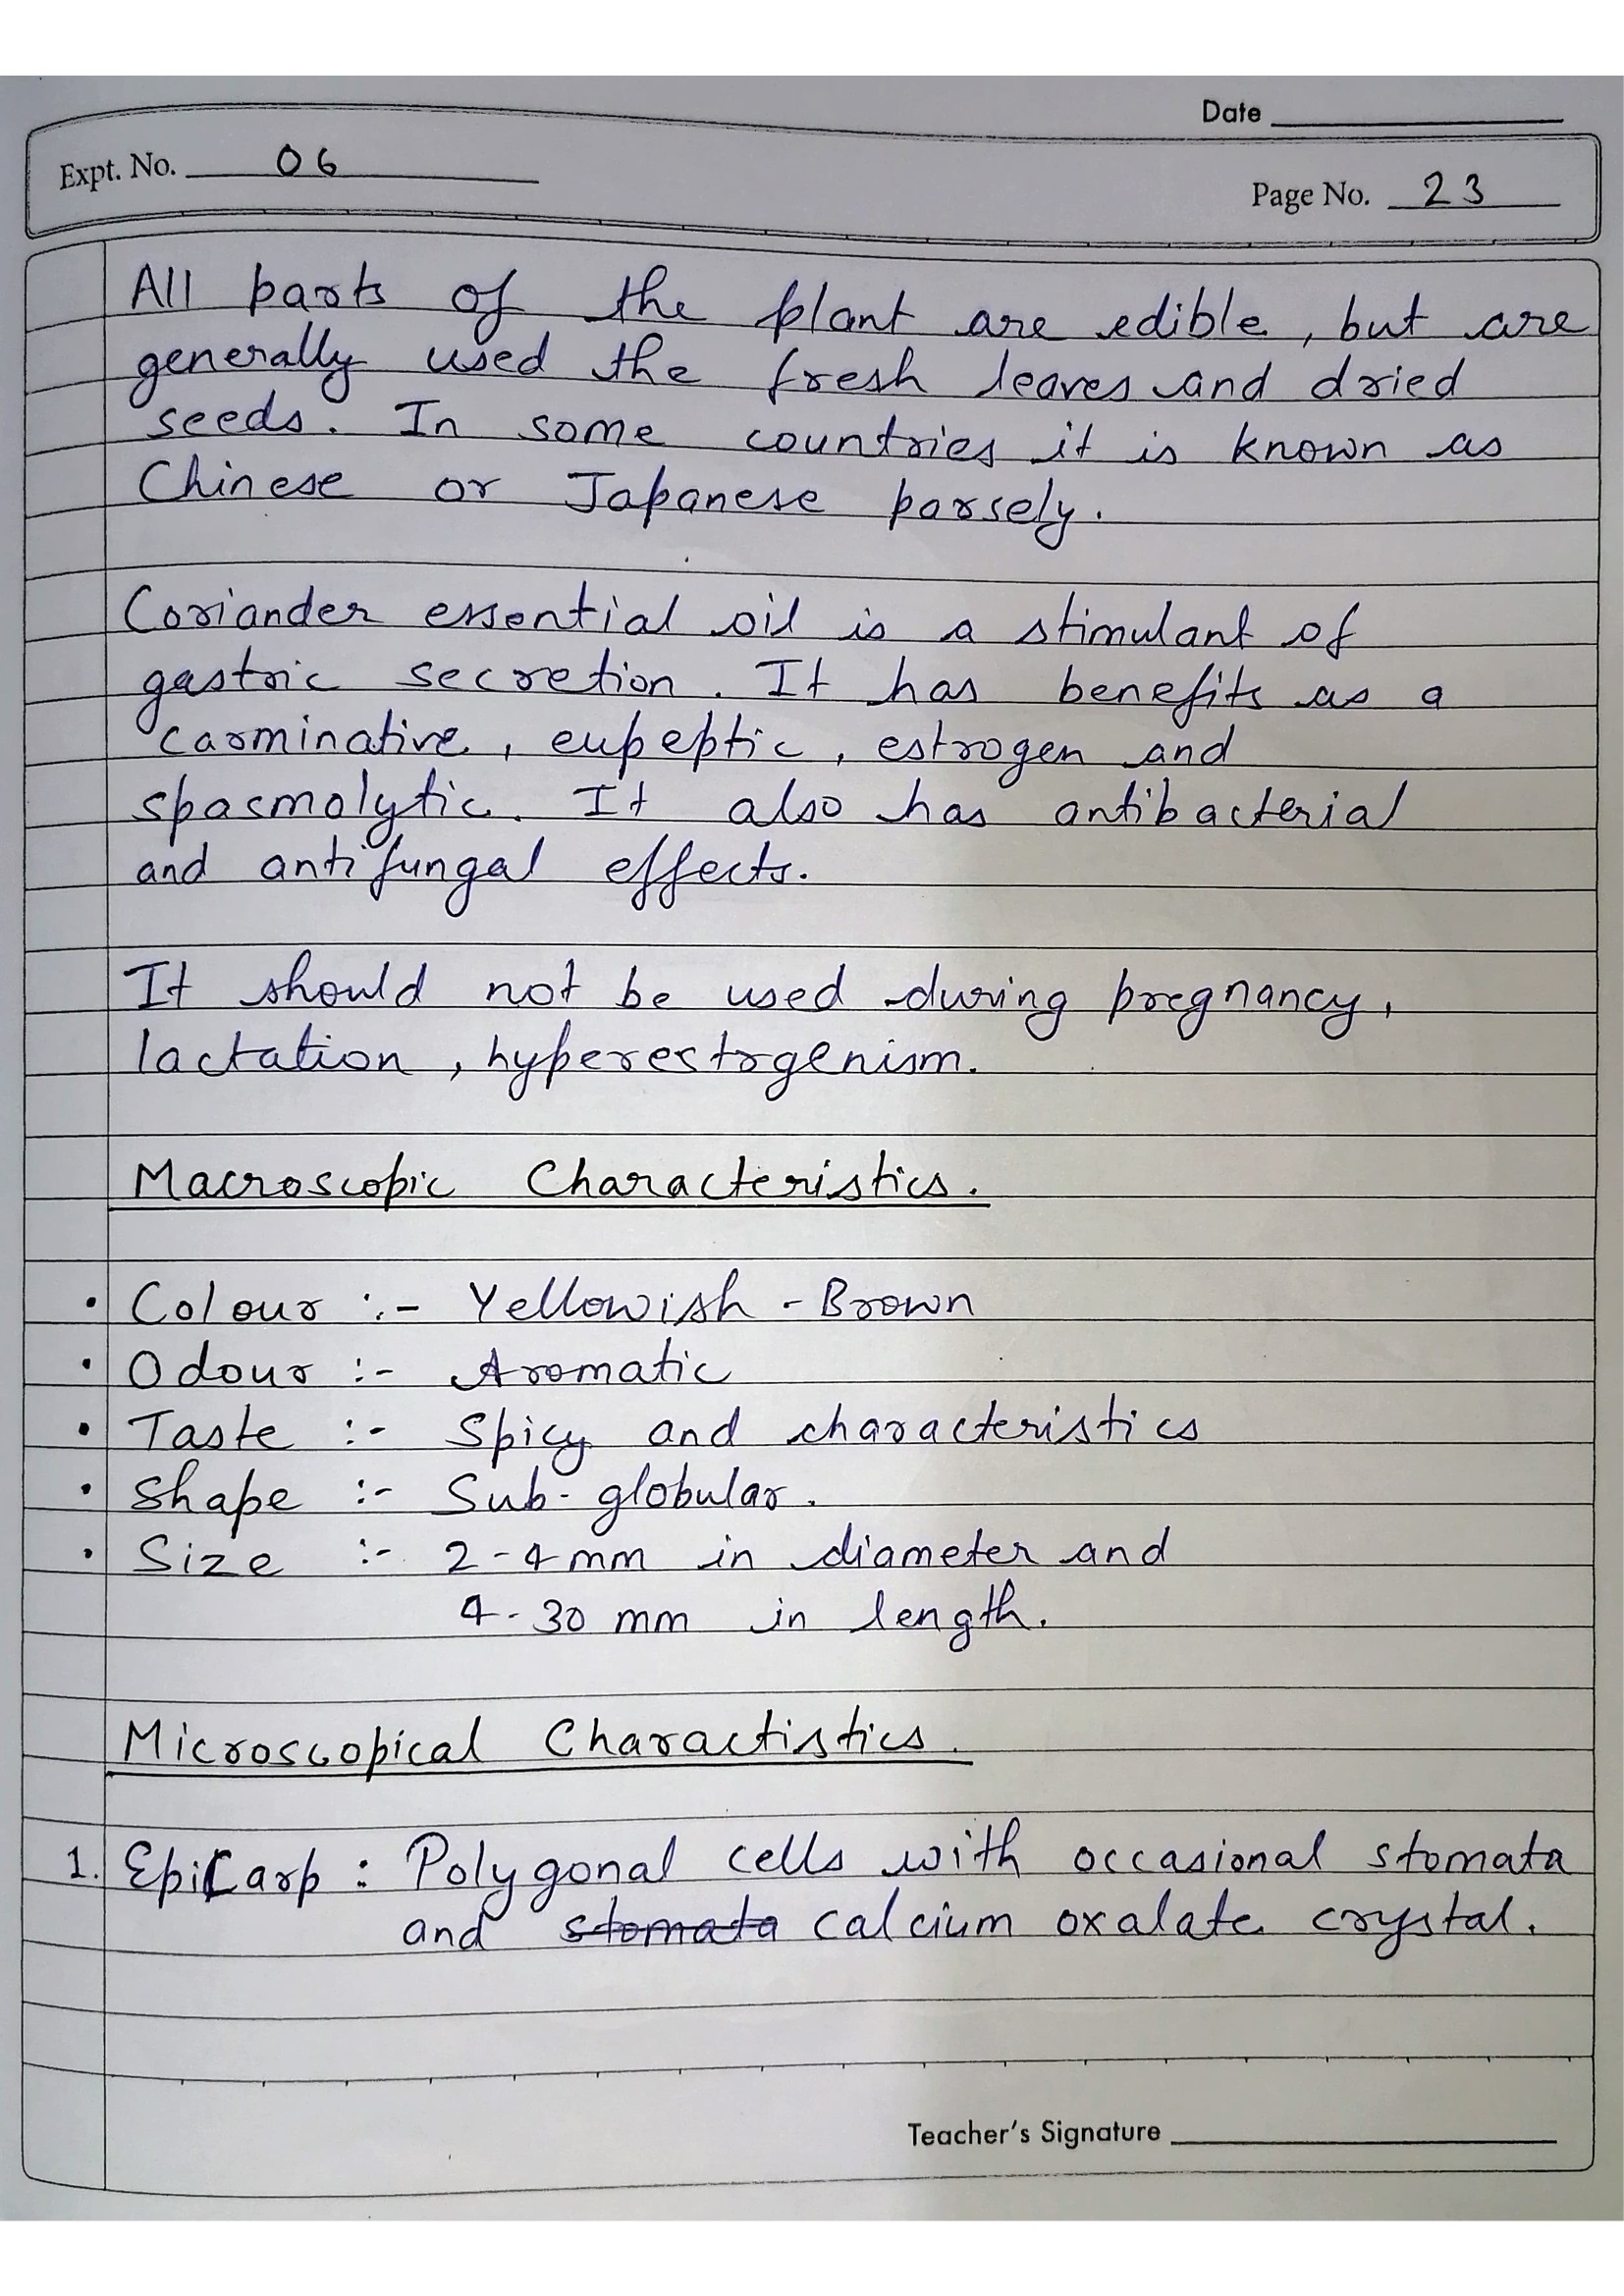 Date
Expt. No. 06
Page No. 23
All parts of the plant are edible, but are
generally used the fresh leaves and dried
seeds. In some countries it is known as
Chinese or Japanese parsely.
Coriander essential oil is a stimulant of
gastric secretion. It has benefits as a
carminative, eupeptic, estrogen and
spasmolytic. It also has antibacterial
and antifungal effects.
It should not be used during pregnancy,
lactation, hyperestrogenism.
Macroscopic Characteristics.
• Colour :- Yellowish - Brown
• Odour :- Aromatic
• Taste :- Spicy and characteristics
• Shape :- Sub-globular.
• Size :- 2-4 mm in diameter and
4-30 mm in length.
Microscopical Charactistics.
1. EpiCarp : Polygonal cells with occasional stomata
and stomata calcium oxalate crystal.
Teacher's Signature